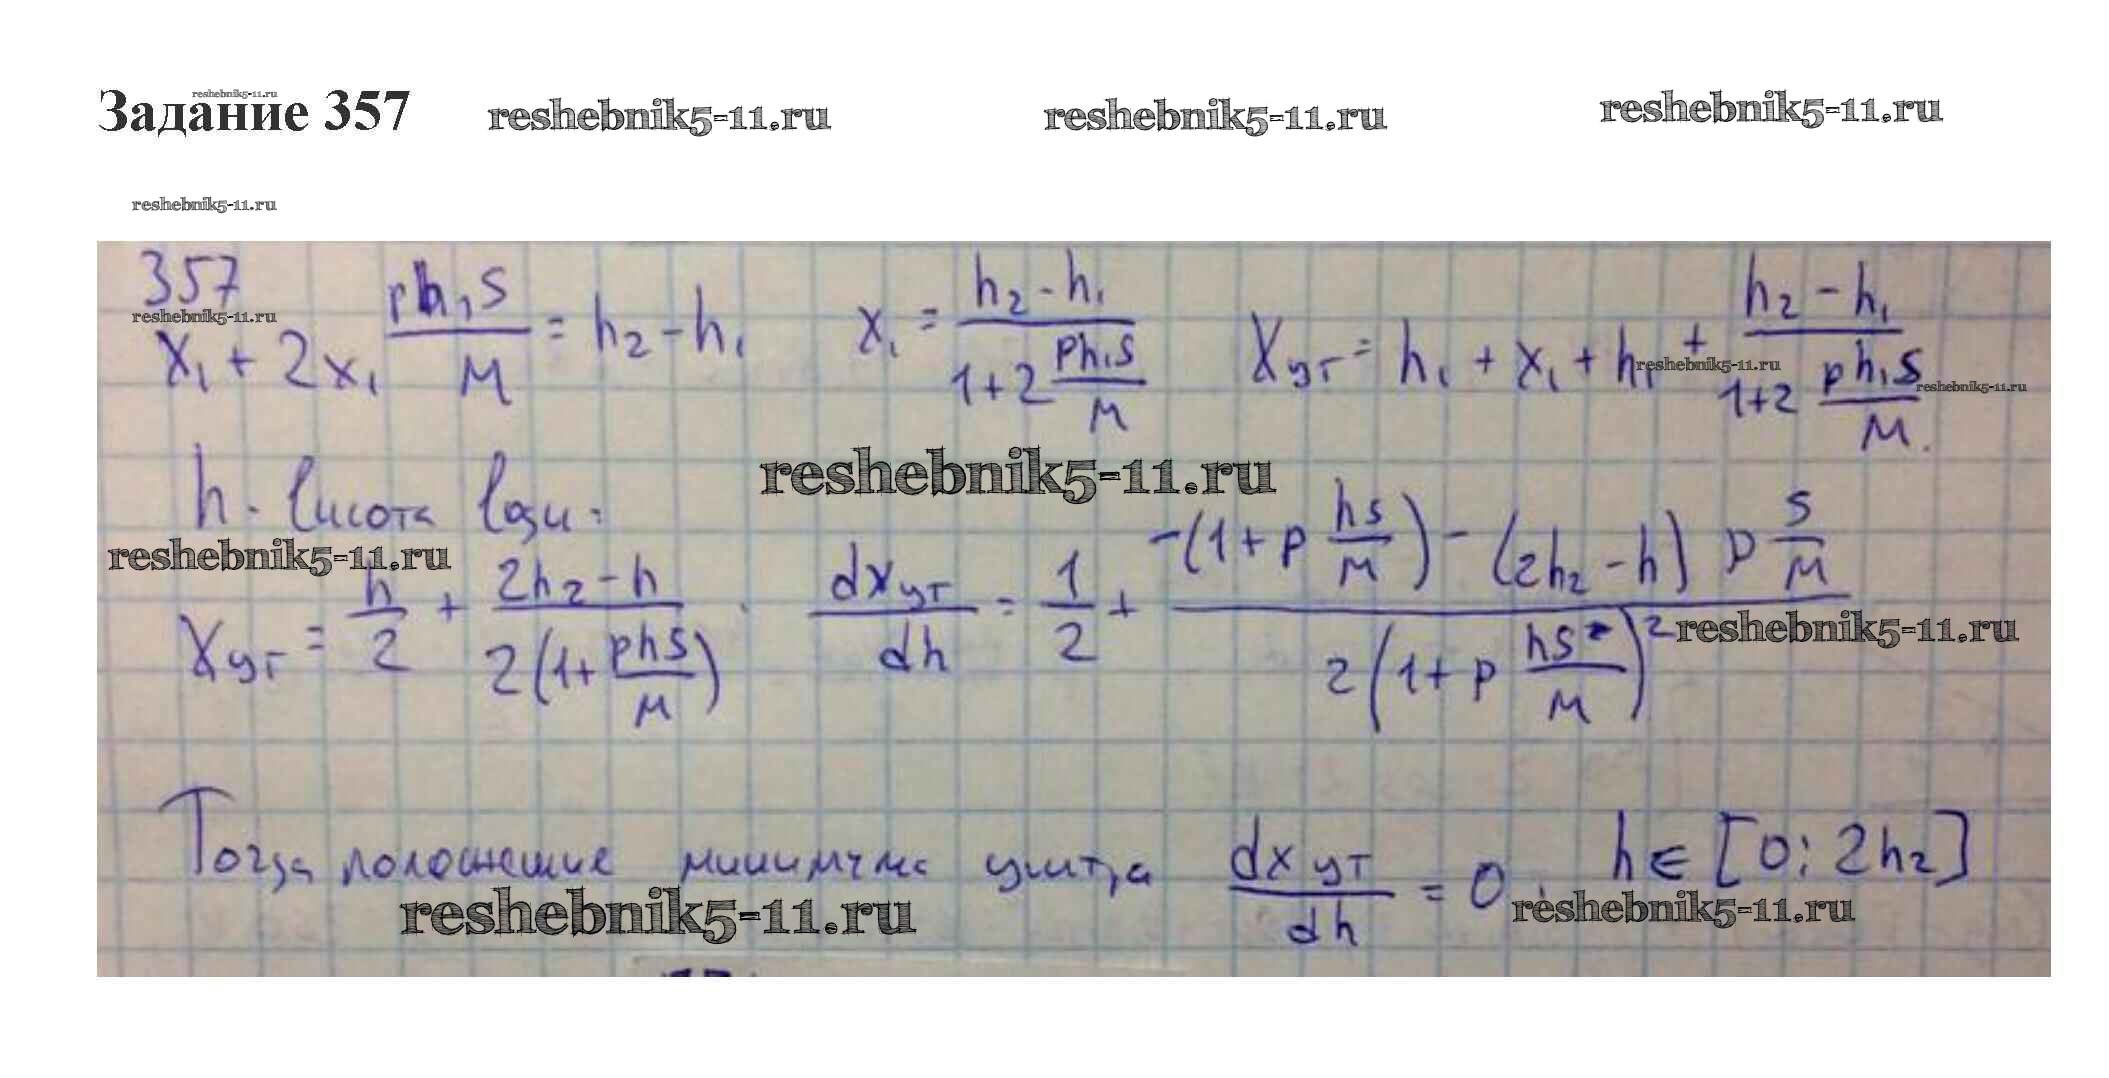 reshebnik5-11.ru
Задание 357 reshebnik5-11.ru reshebnik5-11.ru reshebnik5-11.ru
reshebnik5-11.ru
357
reshebnik5-11.ru
x₁ + 2x₁ ph₁S/M = h₂ - h₁ x₁ = (h₂ - h₁)/(1+2 ph₁S/M) Xцт = h₁ + x₁ + h₁ + (h₂ - h₁)/(1+2 ph₁S/M).
reshebnik5-11.ru reshebnik5-11.ru
reshebnik5-11.ru
h - висота води.
reshebnik5-11.ru
Xцт = h/2 + (2h₂ - h)/(2(1+ phS/M)). dxцт/dh = 1/2 + (-(1+p hs/M) - (2h₂ - h) p s/M)/(2(1+p hs/M)²)
reshebnik5-11.ru
Тогда положение минимума центра dxцт/dh = 0. h ∈ [0; 2h₂]
reshebnik5-11.ru reshebnik5-11.ru